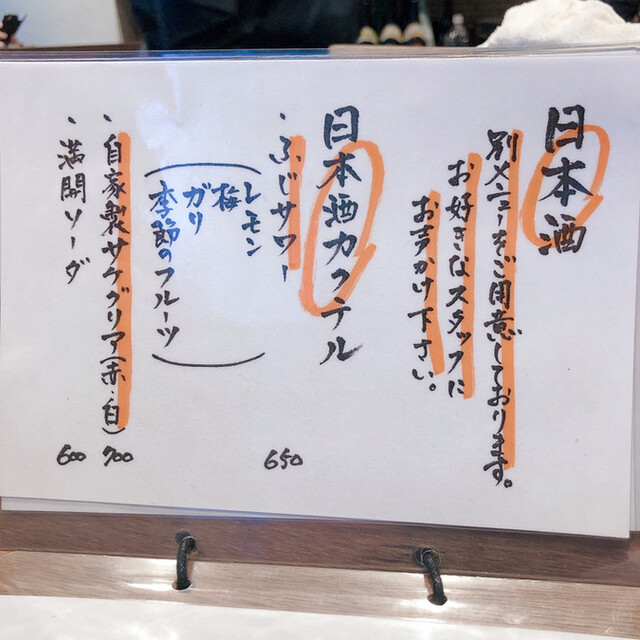 日本酒
別メニューをご用意しております。
お好きなスタッフに
お声かけ下さい。
日本酒カクテル
・ふじサワー 650
(レモン
梅
ガリ
季節のフルーツ)
・自家製サケグリア(赤、白) 700
・満開ソーダ 600